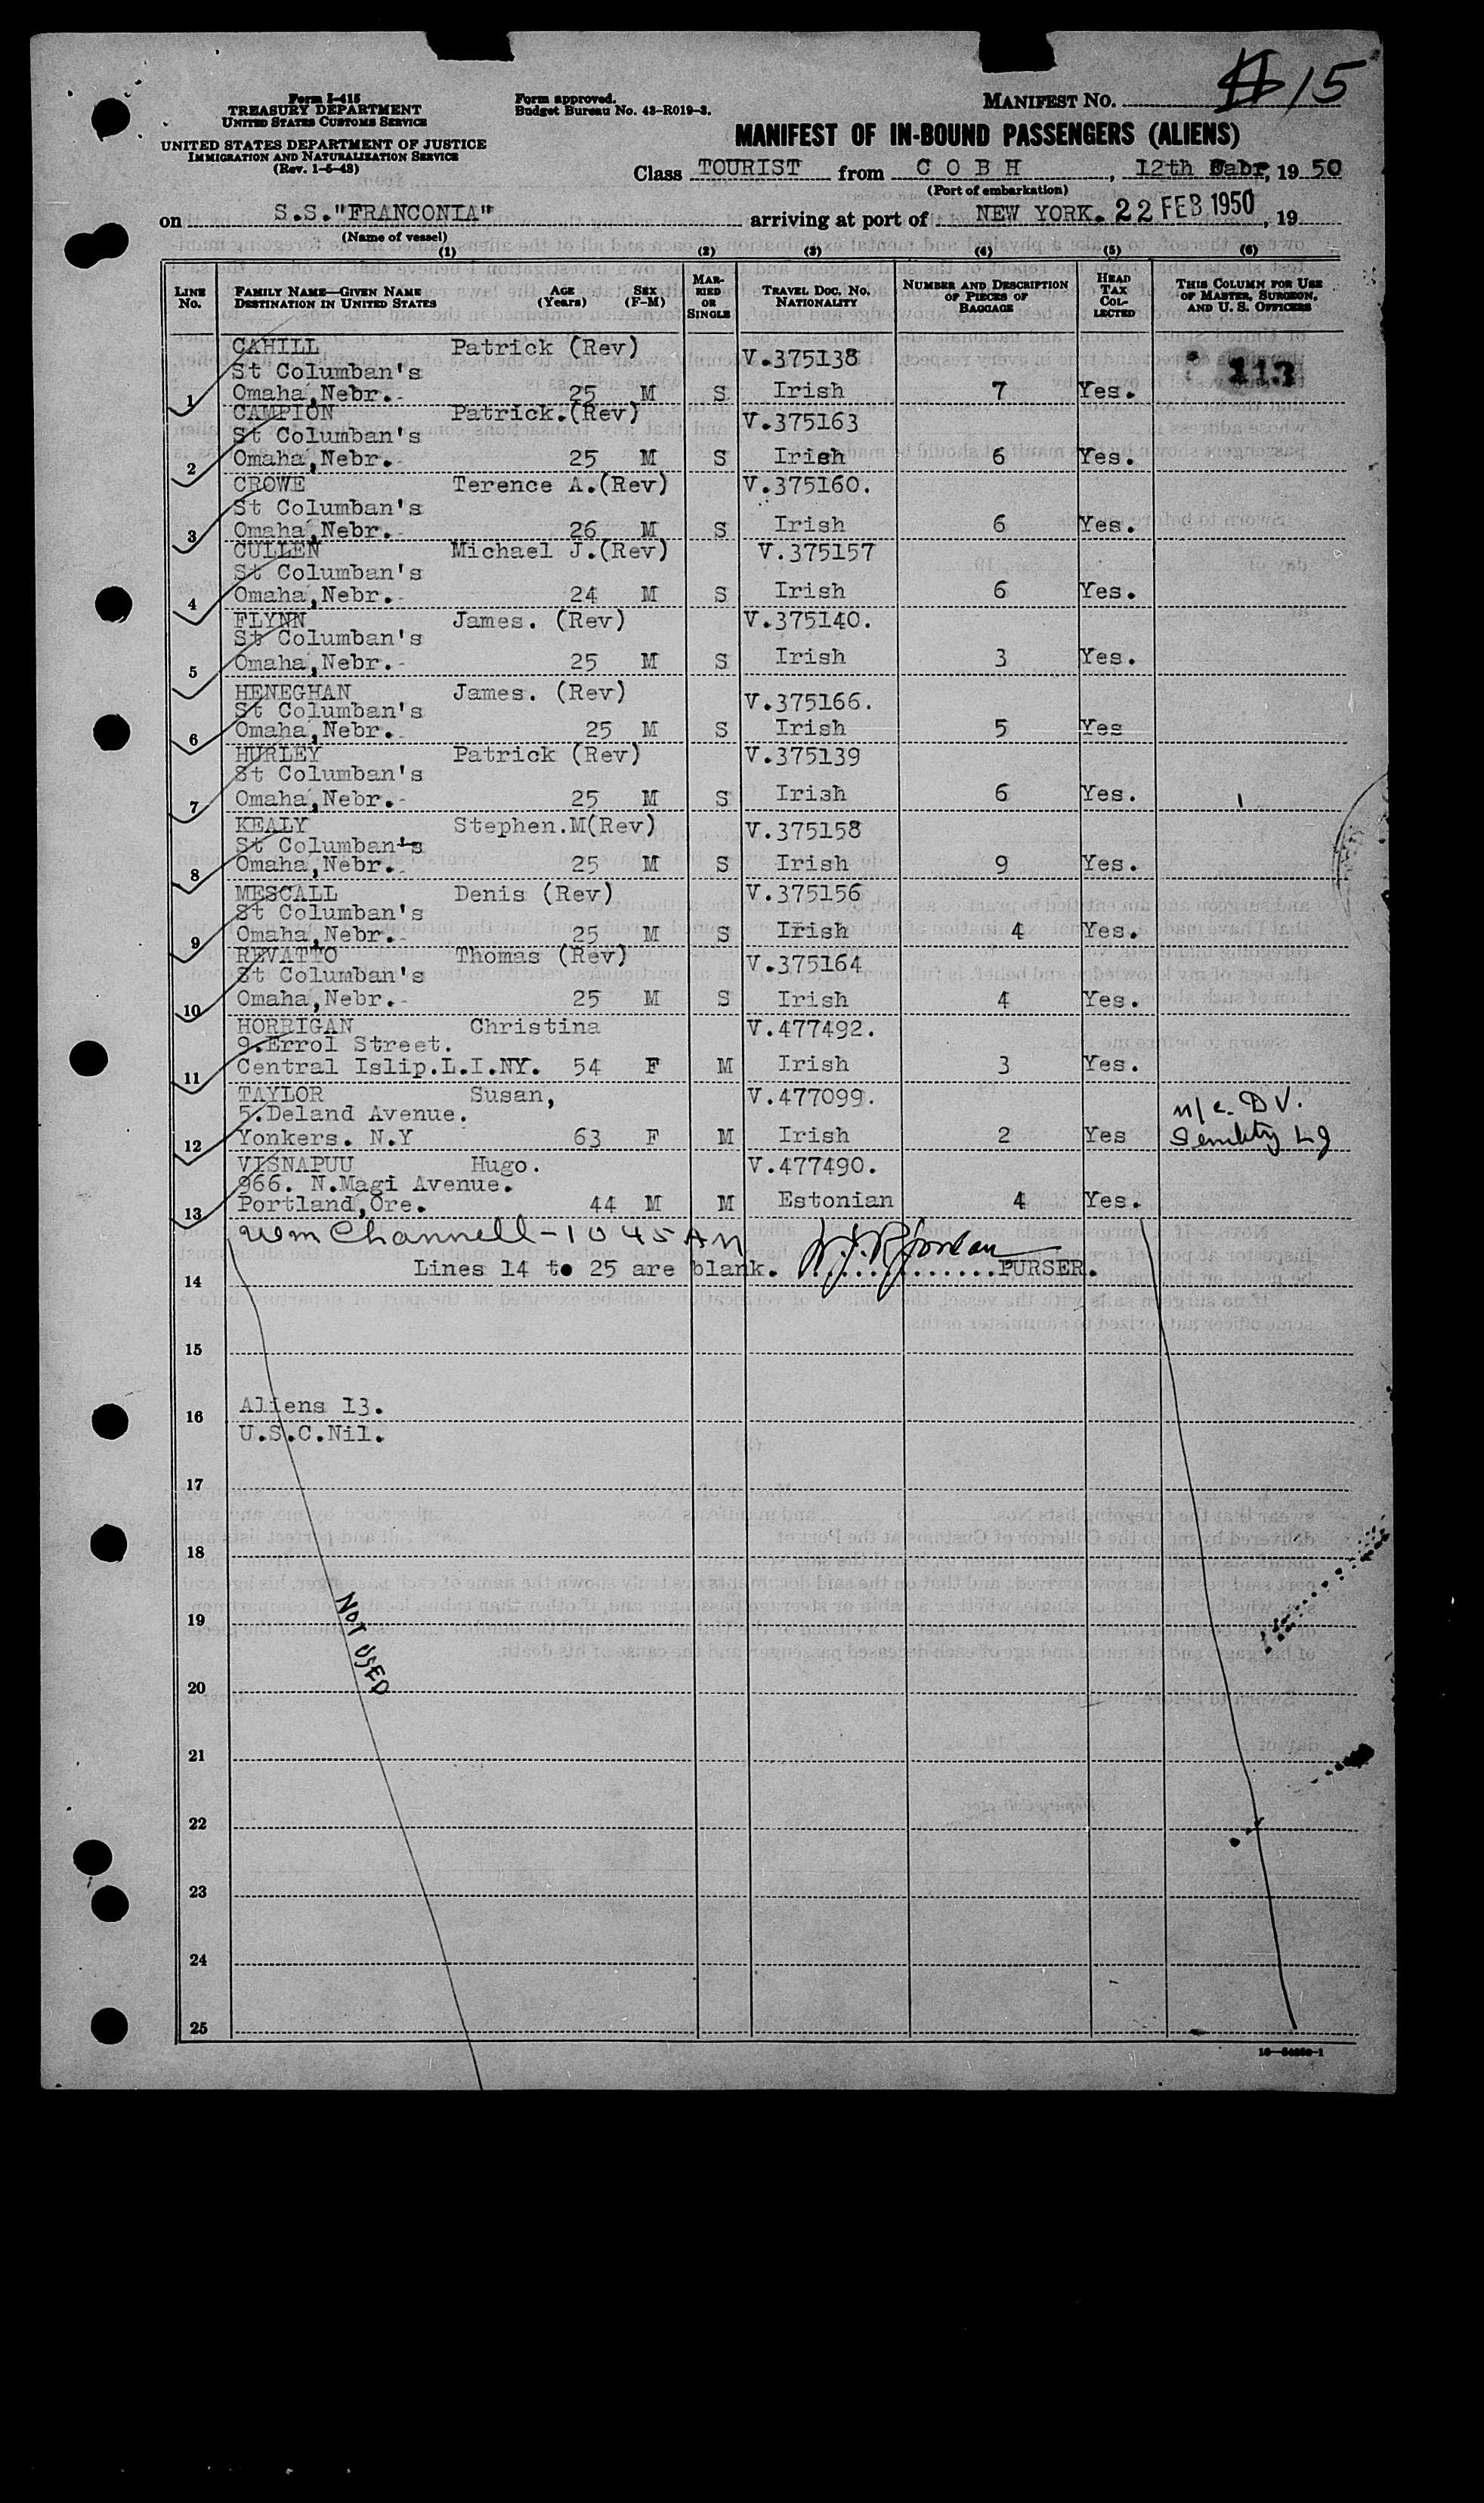 # 15
Form I-415
TREASURY DEPARTMENT
UNITED STATES CUSTOMS SERVICE
UNITED STATES DEPARTMENT OF JUSTICE
IMMIGRATION AND NATURALIZATION SERVICE
(Rev. 1-5-48)
Form approved.
Budget Bureau No. 43-R019-3.
MANIFEST NO.
MANIFEST OF IN-BOUND PASSENGERS (ALIENS)
Class TOURIST from C O B H, 12th 1950
(Port of embarkation)
on S.S."FRANCONIA" arriving at port of NEW YORK. 22 FEB 1950, 19
(Name of vessel)
(1) (2) (3) (4) (5) (6)
LINE No. FAMILY NAME—GIVEN NAME DESTINATION IN UNITED STATES AGE (Years) SEX (F-M) MARRIED OR SINGLE TRAVEL DOC. NO. NATIONALITY NUMBER AND DESCRIPTION OF PIECES OF BAGGAGE HEAD TAX COLLECTED THIS COLUMN FOR USE OF MASTER, SURGEON, AND U. S. OFFICERS
CAHILL Patrick (Rev) V.375138 113
St Columban's
1 Omaha,Nebr.- 25 M S Irish 7 Yes.
CAMPION Patrick.(Rev) V.375163
St Columban's
2 Omaha,Nebr.- 25 M S Irish 6 Yes.
CROWE Terence A.(Rev) V.375160.
St Columban's
3 Omaha,Nebr.- 26 M S Irish 6 Yes.
CULLEN Michael J.(Rev) V.375157
St Columban's
4 Omaha,Nebr.- 24 M S Irish 6 Yes.
FLYNN James. (Rev) V.375140.
St Columban's
5 Omaha,Nebr.- 25 M S Irish 3 Yes.
HENEGHAN James. (Rev) V.375166.
St Columban's
6 Omaha,Nebr.- 25 M S Irish 5 Yes
HURLEY Patrick (Rev) V.375139
St Columban's
7 Omaha,Nebr.- 25 M S Irish 6 Yes.
KEALY Stephen.M(Rev) V.375158
St Columban's
8 Omaha,Nebr.- 25 M S Irish 9 Yes.
MESCALL Denis (Rev) V.375156
St Columban's
9 Omaha,Nebr.- 25 M S Irish 4 Yes.
REVATTO Thomas (Rev) V.375164
St Columban's
10 Omaha,Nebr.- 25 M S Irish 4 Yes.
HORRIGAN Christina V.477492.
9.Errol Street.
11 Central Islip.L.I.NY. 54 F M Irish 3 Yes.
TAYLOR Susan, V.477099.
5.Deland Avenue. n/c. D V.
12 Yonkers. N.Y 63 F M Irish 2 Yes Senility
VISNAPUU Hugo. V.477490.
966. N.Magi Avenue.
13 Portland,Ore. 44 M M Estonian 4 Yes.
Wm Channell - 10 45 AM
14 Lines 14 to 25 are blank. ..............PURSER.
15
16 Aliens 13.
U.S.C.Nil.
17
18
19 NOT USED
20
21
22
23
24
25